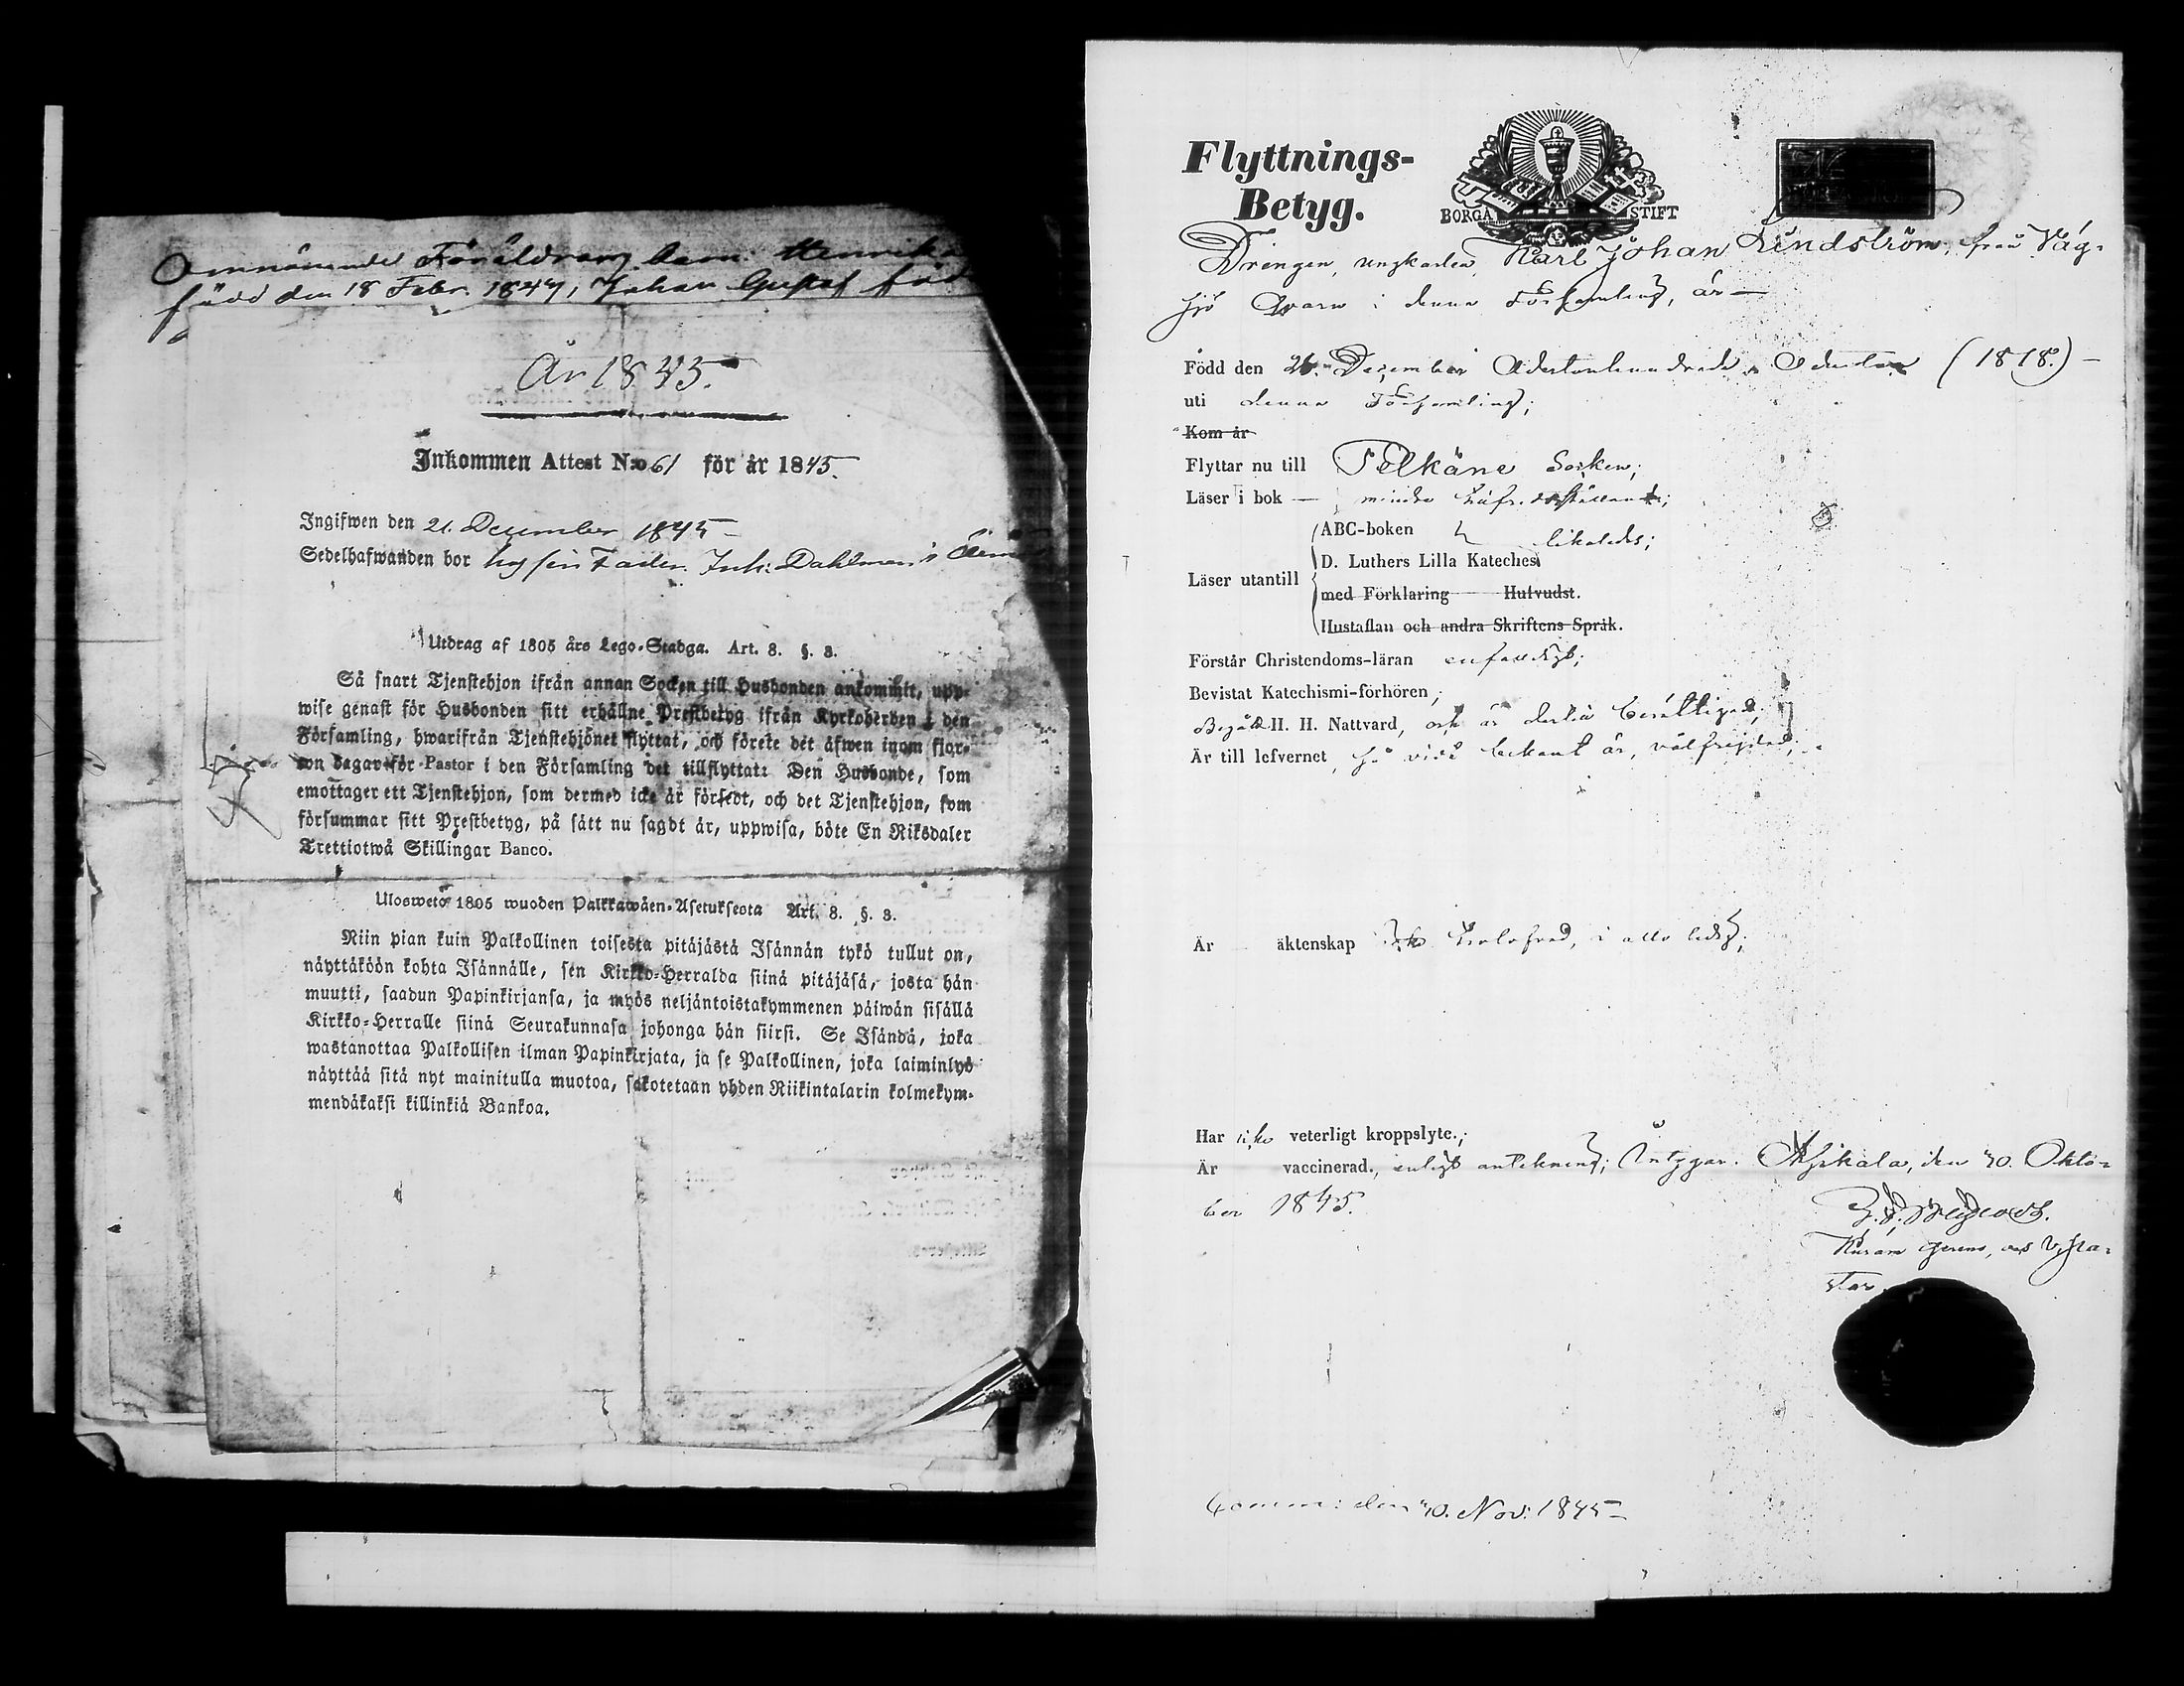 Omnämnde Föräldrars barn: Henrika
född den 18 Febr. 1844, Johan Gustaf föd
År 1845.
Inkommen Attest N:o 61 för år 1845.
Ingifwen den 21. December 1845
Sedelhafwanden bor hos sin Fader Inh: Dahlman i
Utdrag af 1805 års Lego-Stadga. Art. 8. §. 3.
Så snart Tjenstehjon ifrån annan Socken till Husbonden ankommit, upp-
wise genast för Husbonden sitt erhållne Prestbetyg ifrån Kyrkoherden i den
Församling, hwarifrån Tjenstehjonet flyttat, och förete det äfwen inom fjor-
ton dagar för Pastor i den Församling det tillflyttat: Den Husbonde, som
emottager ett Tjenstehjon, som dermed icke är försedt, och det Tjenstehjon, som
försummar sitt Prestbetyg, på sätt nu sagdt är, uppwisa, böte En Riksdaler
Trettiotwå Skillingar Banco.
Uloswetö 1805 wuoden Palkkawäen-Asetuksesta Art. 8. §. 3.
Niin pian kuin Palkollinen toisesta pitäjästä Isännän tykö tullut on,
näyttäköön kohta Isännälle, sen Kirkko-Herralda siinä pitäjäsä, josta hän
muutti, saadun Papinkirjansa, ja myös neljäntoistakymmenen päiwän sisällä
Kirkko-Herralle siinä Seurakunnasa johonga hän siirsi. Se Isändä, joka
wastanottaa Palkollisen ilman Papinkirjata, ja se Palkollinen, joka laiminlyö
näyttää sitä nyt mainitulla muotoa, sakotetaan yhden Riikintalarin kolmekym-
mendäkaksi killinkiä Bankoa.
Flyttnings-
Betyg.
BORGÅ STIFT
Drengen, ungkarlen Karl Johan Lindström, från Väg-
sjö Qvarn i denna Församling, är
Född den 26 December Adertonhundrade Aderton (1818.)
uti denna Församling;
Kom år
Flyttar nu till Pelkäne Socken;
Läser i bok mindre
ABC-boken likaledes;
D. Luthers Lilla Kateches
Läser utantill
med Förklaring Hufvudst.
Hustaflan och andra Skriftens Språk.
Förstår Christendoms-läran enfaldigt;
Bevistat Katechismi-förhören;
Begått H. H. Nattvard, och är dertill berättigad;
Är till lefvernet, så vidt bekant är, välfrejdad;
Är äktenskap i alla
Har icke veterligt kroppslyte.;
Är vaccinerad., enligt anteckning; Intygar. Asikala, den 30. Okto-
ber 1845.
gerens, Vpa-
stor
den 30. Nov: 1845